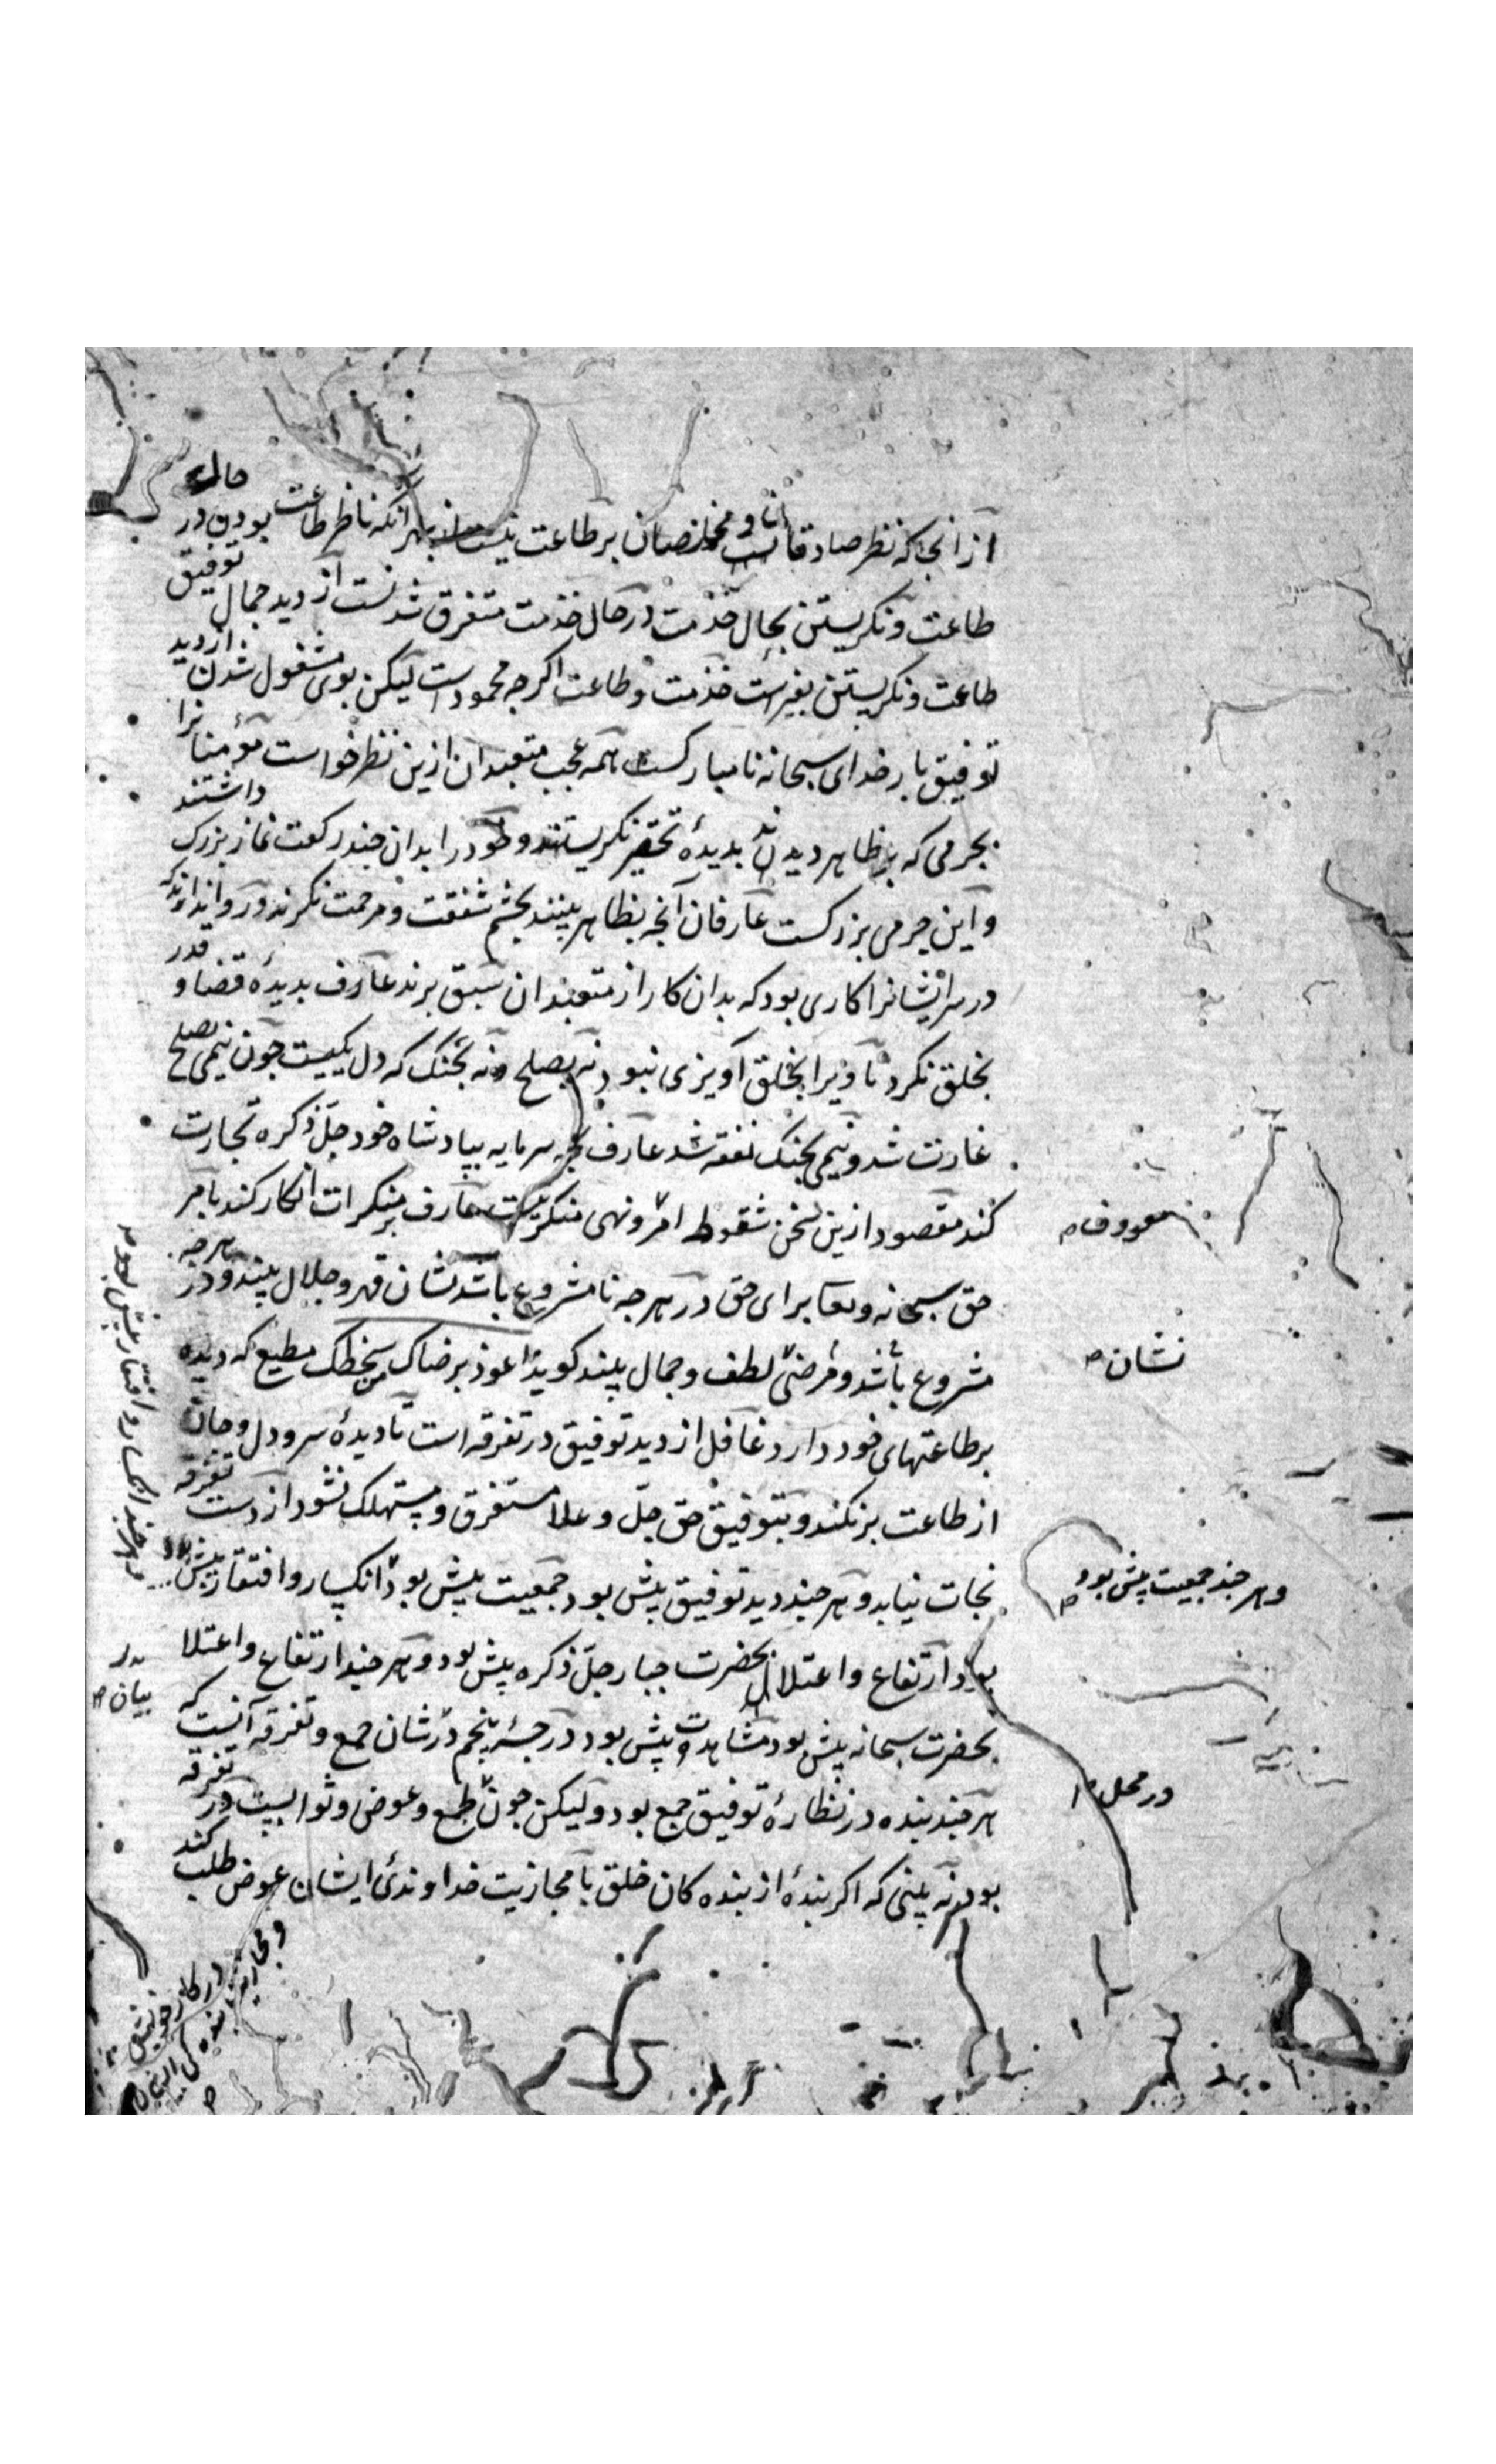 از آنجا که نظر صادقان و مخلصان بر طاعت نیست از بهر آنکه ناظر طاعت بودن در حالت
طاعت و نکریستن بحال خذمت در حال خذمت متفرق شدنست از دید جمال توفیق
طاعت و نکریستن خذمت و طاعت اکرجه محمود است لیکن بوی مشغول شدن از دید
توفیق بار خدای سبحانه نامبارکست همه عجب متعبدان ازین نظر خواست مؤمنانرا
بجرمی که بظاهر دیدند بدیدهٔ تحقیر نکریستند و خود را بدان جند رکعت نماز بزرک داشتند
و این جرمی بزرکست عارفان آنجه بظاهر بینند بجشم شفقت و مرحمت نکرند و روا ندارند که
در سر ایشانرا کاری بود که بدان کار از متعبدان سبق برند عارف بدیدهٔ قضا و قدر
بخلق نکرد تا ویرا بخلق آویزی نبود نه بصلح و نه بجنک که دل یکیست جون نیمی بصلح
غارت شد و نیمی بجنک نفقه شد عارف بجه سرمایه بپادشاه خود جلّ ذکره تجارت
کند مقصود ازین سخن سقوط امر و نهی منکر نیست عارف بر منکرات انکار کند بامر
معروف
حق سبحانه و تعا برای حق در هرجه نامشروع باشد نشان قهر و جلال بیند و در هرجه
مشروع باشد و مرضی لطف و جمال بیند کوید اعوذ برضاک من سخطک مطیع که دیده
نشان
بر طاعتهای خود دارد غافل از دید توفیق در تفرقه است تا دیدهٔ سر و دل و جان
از طاعت بر نکند و بتوفیق حق جلّ و علا مستغرق و مستهلک نشود از دست تفرقه
نجات نیابد و هرجند دید توفیق بیش بود جمعیت بیش بود انکسار و افتقار بیش بود
و هرجند جمعیت بیش بود
و هرجند انکسار و افتقار بیش بود
بود ارتفاع و اعتلا بحضرت جبار جلّ ذکره بیش بود و هرجند ارتفاع و اعتلا
بحضرت سبحانه بیش بود مشاهدت بیش بود درجهٔ پنجم در شان جمع و تفرقه آنست که
در بیان
هرجند بنده در نظارهٔ توفیق جمع بود و لیکن جون طمع و عوض و ثوابست در تفرقه
در محل
بود نه بینی که اکر بندهٔ از بنده کان خلق با مجازیت خداوندئ ایشان عوض طلب کند
در کار خویش